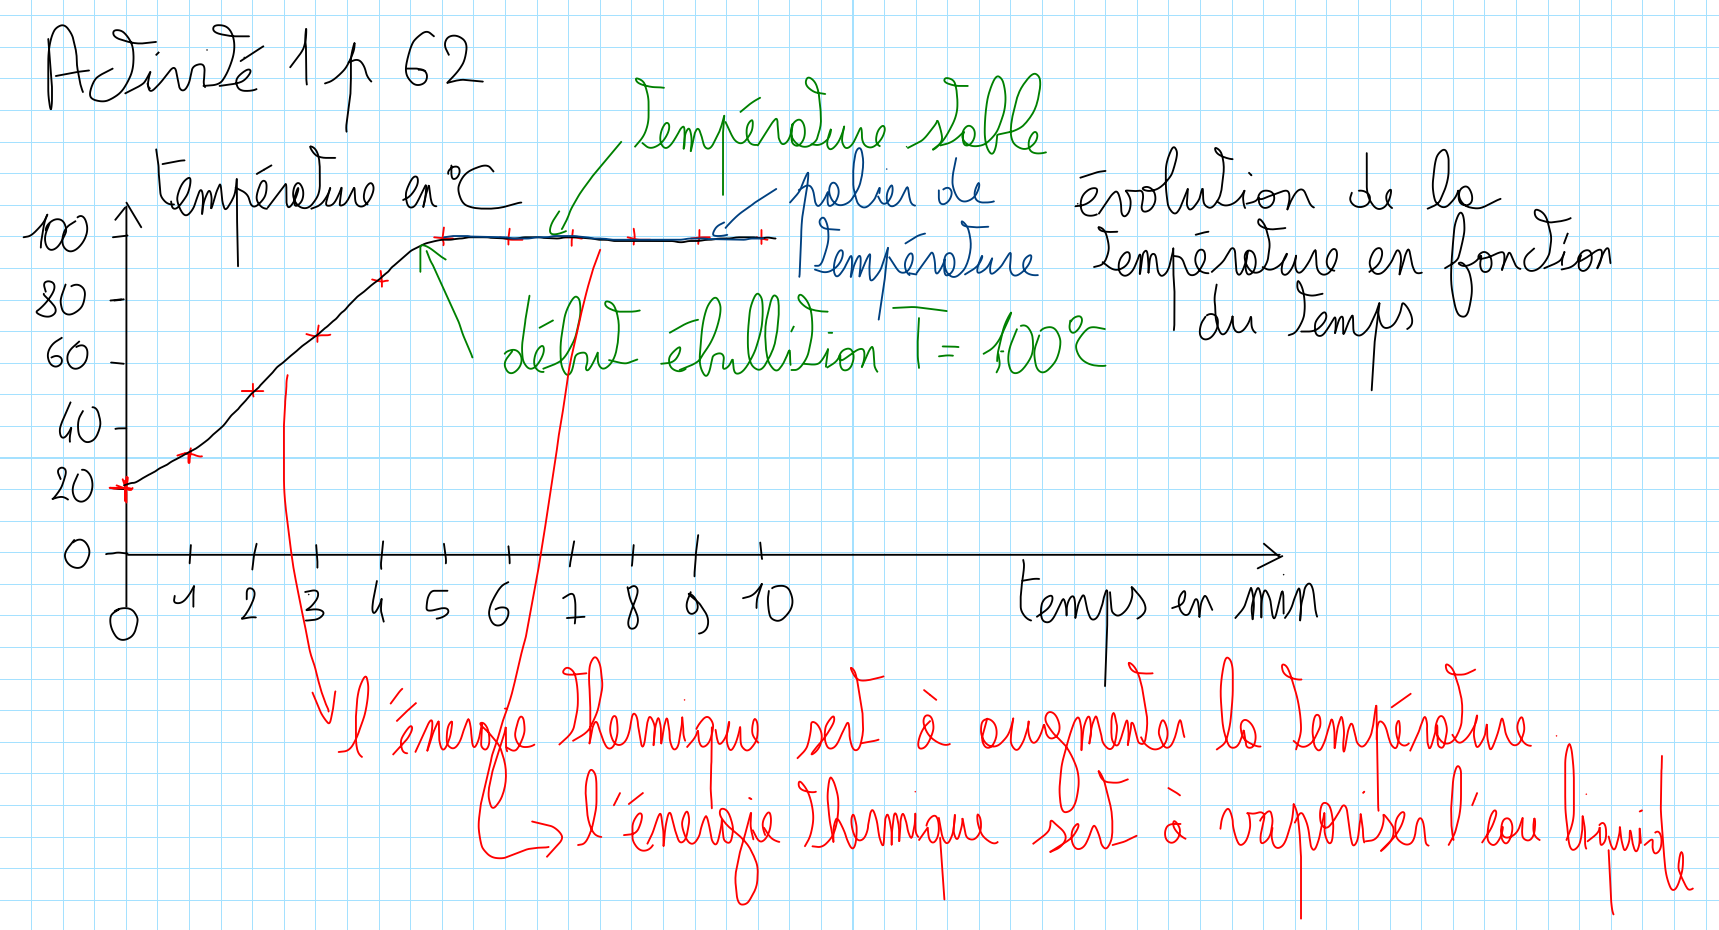 Activité 1 p 62
Température stable
température en °C
palier de
température
évolution de la
température en fonction
du temps
100
80
60
40
20
0
début ébullition T = 100°C
0 1 2 3 4 5 6 7 8 9 10
temps en min
l'énergie thermique sert à augmenter la température
l'énergie thermique sert à vaporiser l'eau liquide